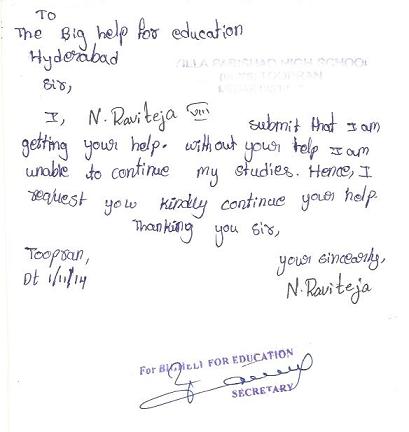 TO
The Big help for education
Hyderabad
ZILLA PARISHAD HIGH SCHOOL
TOOPRAN
Sir,
I, N. Raviteja VIII submit that I am
getting your help. without your help I am
unable to continue my studies. Hence, I
request you kindly continue your help.
Thanking you Sir,
Toopran,
Dt 1/11/14
your sincearly,
N. Raviteja
For BIGHELP FOR EDUCATION
SECRETARY